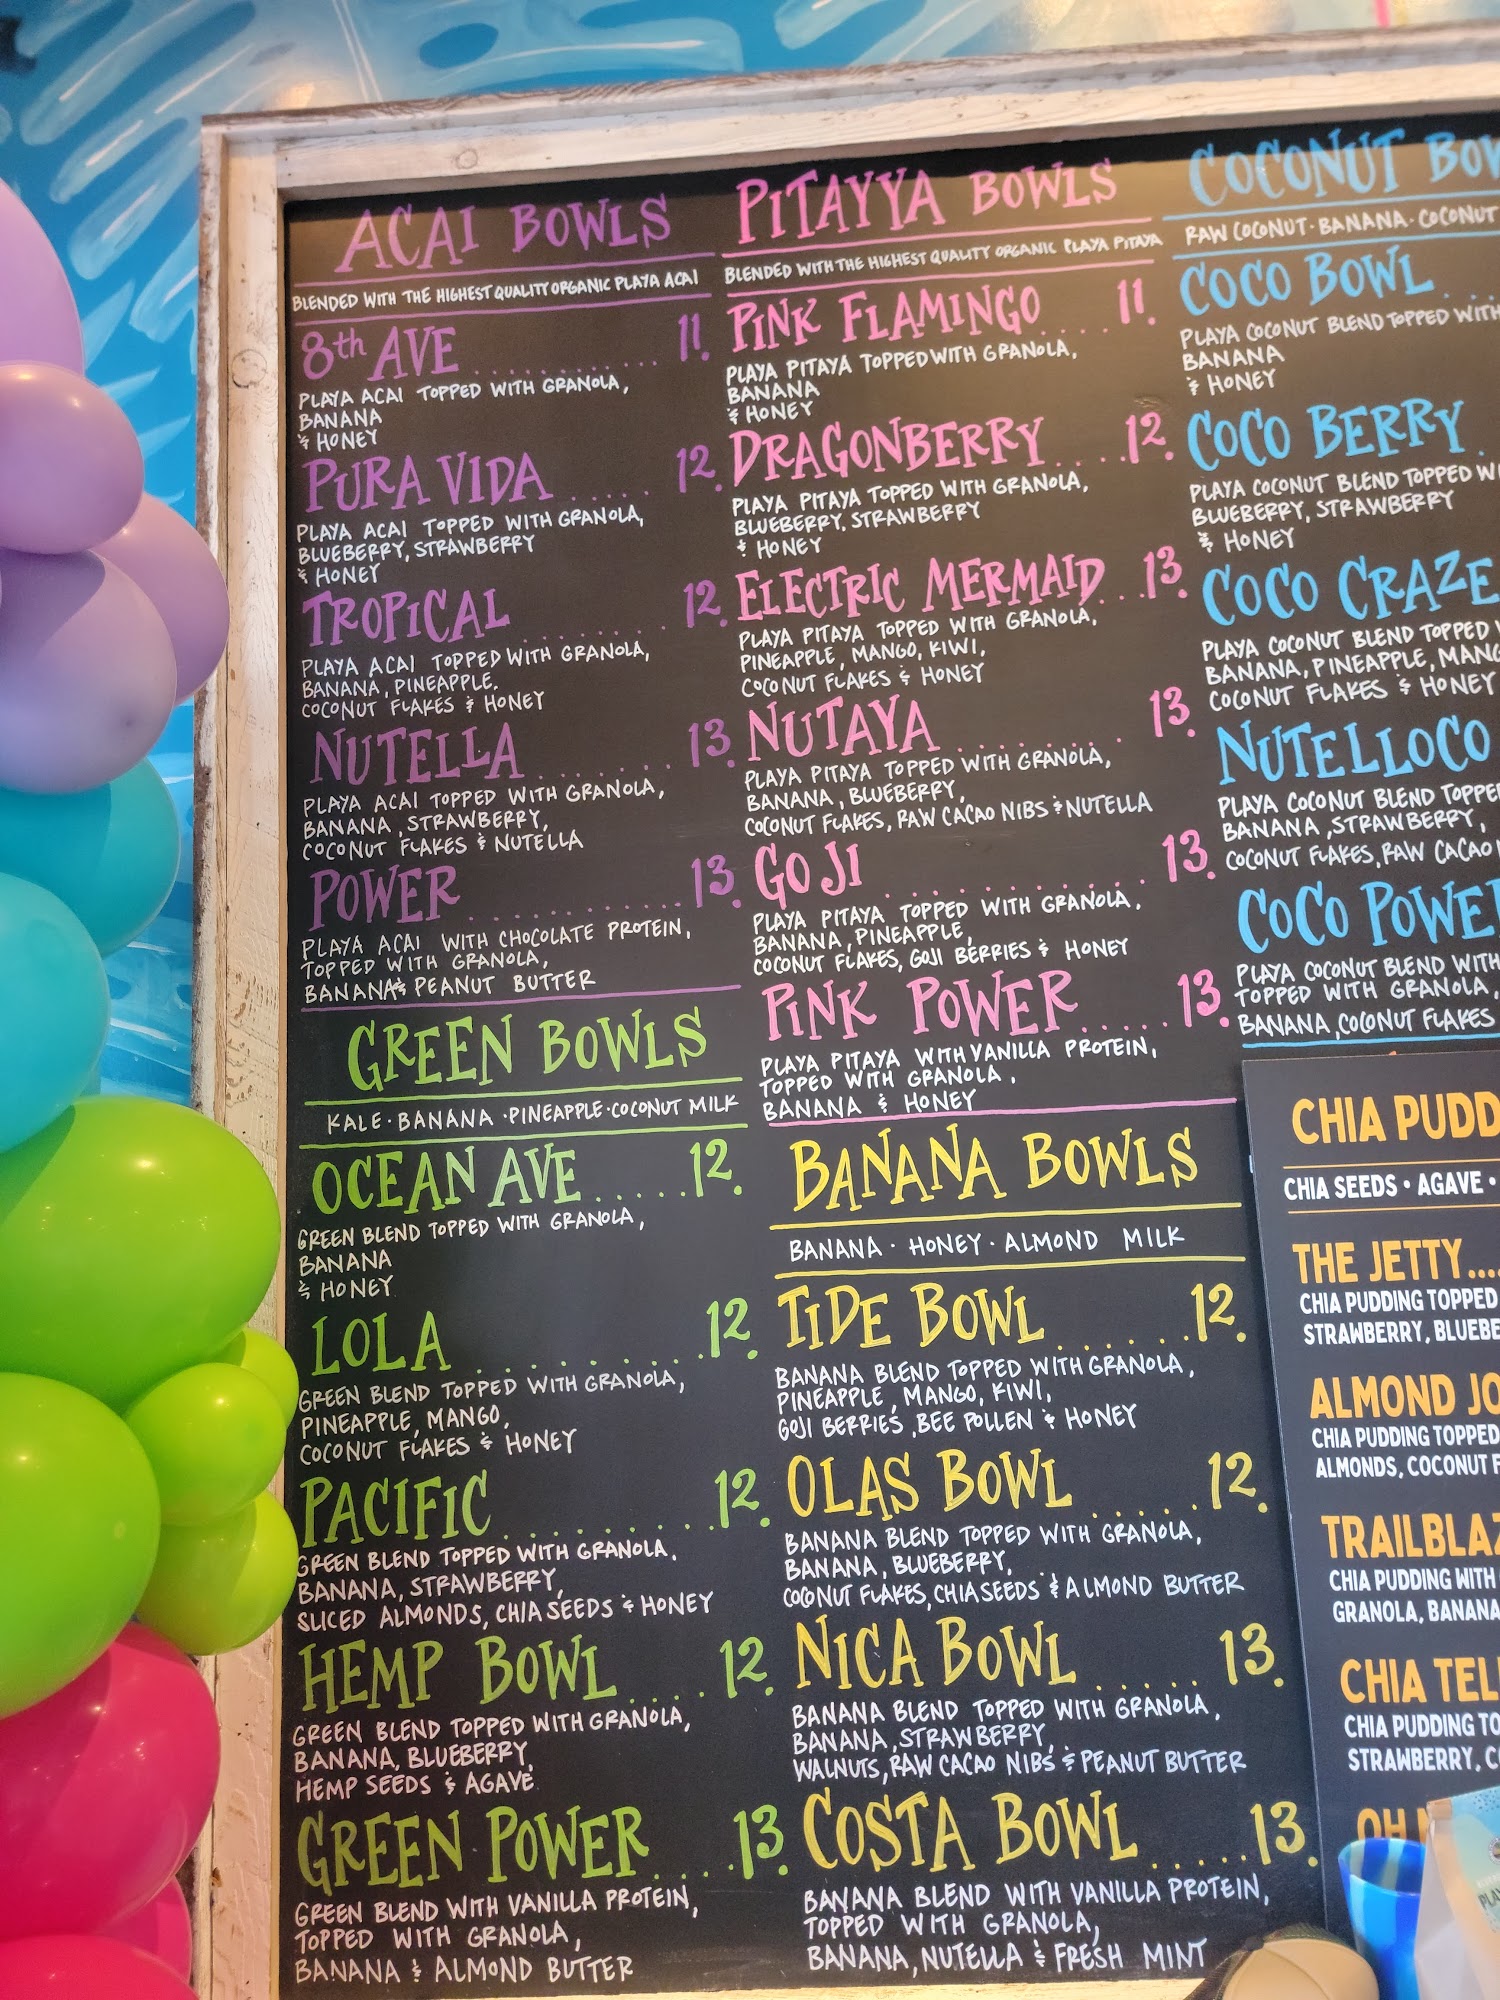 ACAI BOWLS
BLENDED WITH THE HIGHEST QUALITY ORGANIC PLAYA ACAI
8th AVE ........... 11.
PLAYA ACAI TOPPED WITH GRANOLA,
BANANA
& HONEY
PURA VIDA ...... 12.
PLAYA ACAI TOPPED WITH GRANOLA,
BLUEBERRY, STRAWBERRY
& HONEY
TROPICAL .......... 12.
PLAYA ACAI TOPPED WITH GRANOLA,
BANANA, PINEAPPLE,
COCONUT FLAKES & HONEY
NUTELLA ......... 13.
PLAYA ACAI TOPPED WITH GRANOLA,
BANANA, STRAWBERRY,
COCONUT FLAKES & NUTELLA
POWER ............. 13.
PLAYA ACAI WITH CHOCOLATE PROTEIN,
TOPPED WITH GRANOLA,
BANANA & PEANUT BUTTER
GREEN BOWLS
KALE · BANANA · PINEAPPLE · COCONUT MILK
OCEAN AVE ..... 12.
GREEN BLEND TOPPED WITH GRANOLA,
BANANA
& HONEY
LOLA ............ 12.
GREEN BLEND TOPPED WITH GRANOLA,
PINEAPPLE, MANGO,
COCONUT FLAKES & HONEY
PACIFIC .......... 12.
GREEN BLEND TOPPED WITH GRANOLA,
BANANA, STRAWBERRY,
SLICED ALMONDS, CHIA SEEDS & HONEY
HEMP BOWL ..... 12.
GREEN BLEND TOPPED WITH GRANOLA,
BANANA, BLUEBERRY,
HEMP SEEDS & AGAVE
GREEN POWER ..... 13.
GREEN BLEND WITH VANILLA PROTEIN,
TOPPED WITH GRANOLA,
BANANA & ALMOND BUTTER
PITAYYA BOWLS
BLENDED WITH THE HIGHEST QUALITY ORGANIC PLAYA PITAYA
PINK FLAMINGO ..... 11.
PLAYA PITAYA TOPPED WITH GRANOLA,
BANANA
& HONEY
DRAGONBERRY ..... 12.
PLAYA PITAYA TOPPED WITH GRANOLA,
BLUEBERRY, STRAWBERRY
& HONEY
ELECTRIC MERMAID ... 13.
PLAYA PITAYA TOPPED WITH GRANOLA,
PINEAPPLE, MANGO, KIWI,
COCONUT FLAKES & HONEY
NUTAYA ......... 13.
PLAYA PITAYA TOPPED WITH GRANOLA,
BANANA, BLUEBERRY,
COCONUT FLAKES, RAW CACAO NIBS & NUTELLA
GOJI ............. 13.
PLAYA PITAYA TOPPED WITH GRANOLA,
BANANA, PINEAPPLE,
COCONUT FLAKES, GOJI BERRIES & HONEY
PINK POWER ..... 13.
PLAYA PITAYA WITH VANILLA PROTEIN,
TOPPED WITH GRANOLA,
BANANA & HONEY
BANANA BOWLS
BANANA · HONEY · ALMOND MILK
TIDE BOWL ...... 12.
BANANA BLEND TOPPED WITH GRANOLA,
PINEAPPLE, MANGO, KIWI,
GOJI BERRIES, BEE POLLEN & HONEY
OLAS BOWL ...... 12.
BANANA BLEND TOPPED WITH GRANOLA,
BANANA, BLUEBERRY,
COCONUT FLAKES, CHIA SEEDS & ALMOND BUTTER
NICA BOWL ...... 13.
BANANA BLEND TOPPED WITH GRANOLA,
BANANA, STRAWBERRY,
WALNUTS, RAW CACAO NIBS & PEANUT BUTTER
COSTA BOWL ..... 13.
BANANA BLEND WITH VANILLA PROTEIN,
TOPPED WITH GRANOLA,
BANANA, NUTELLA & FRESH MINT
COCONUT BOW
RAW COCONUT · BANANA · COCONUT
COCO BOWL
PLAYA COCONUT BLEND TOPPED WITH
BANANA
& HONEY
COCO BERRY
PLAYA COCONUT BLEND TOPPED WI
BLUEBERRY, STRAWBERRY
& HONEY
COCO CRAZE
PLAYA COCONUT BLEND TOPPED
BANANA, PINEAPPLE, MANG
COCONUT FLAKES & HONEY
NUTELLOCO
PLAYA COCONUT BLEND TOPPE
BANANA, STRAWBERRY,
COCONUT FLAKES, RAW CACAO
COCO POWE
PLAYA COCONUT BLEND WITH
TOPPED WITH GRANOLA,
BANANA, COCONUT FLAKES
CHIA PUDD
CHIA SEEDS • AGAVE •
THE JETTY....
CHIA PUDDING TOPPED
STRAWBERRY, BLUEBE
ALMOND JO
CHIA PUDDING TOPPED
ALMONDS, COCONUT F
TRAILBLAZ
CHIA PUDDING WITH
GRANOLA, BANANA
CHIA TEL
CHIA PUDDING TO
STRAWBERRY, C
OH